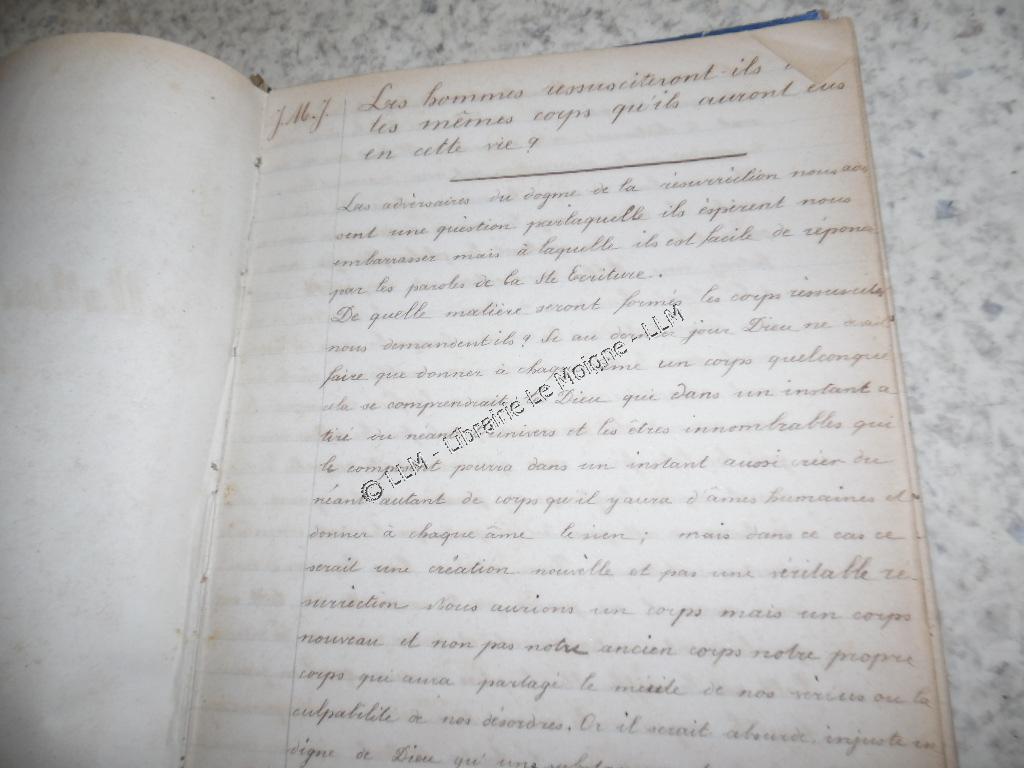 J.M.J.
Les hommes ressusciteront-ils
les mêmes corps qu'ils auront eus
en cette vie?
Les adversaires du dogme de la résurrection nous
sent une question parlaquelle ils éspèrent nous
embarrasser mais à laquelle ils est facile de répon
par les paroles de la Ste Ecriture.
De quelle matière seront formés les corps ressuscités
nous demandent ils? Si au dernier jour Dieu ne
faire que donner à chaque âme un corps quelconque
cela se comprendrait Dieu qui dans un instant a
tiré du néant l'univers et les êtres innombrables qui
le composent pourra dans un instant aussi créer du
néant autant de corps qu'il y aura d'âmes humaines et
donner à chaque âme le sien; mais dans ce cas ce
serait une création nouvelle et pas une véritable ré-
surrection Nous aurions un corps mais un corps
nouveau et non pas notre ancien corps notre propre
corps qui aura partagé le mérite de nos vertus ou la
culpabilité de nos désordres. Or il serait absurde, injuste in
digne de Dieu qu'une
© LLM - Librairie Le Moigne - LLM